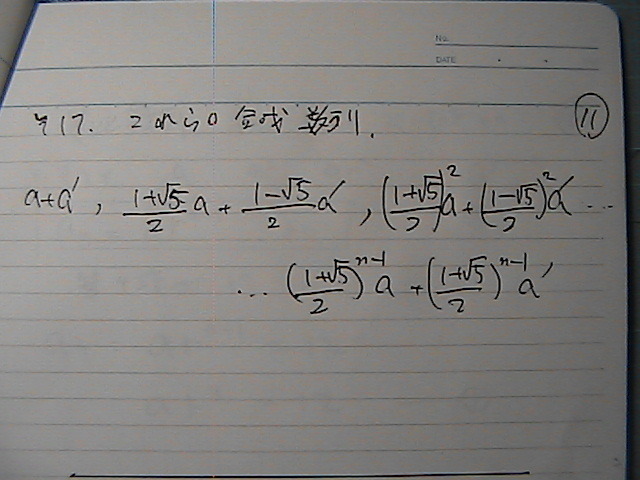 No.
DATE
그17. 2から0 合成数列. ⑪
a+a', \frac{1+√5}{2}a + \frac{1-√5}{2}a', (\frac{1+√5}{2})^2 a + (\frac{1-√5}{2})^2 a' ...
... (\frac{1+√5}{2})^{n-1} a + (\frac{1+√5}{2})^{n-1} a'